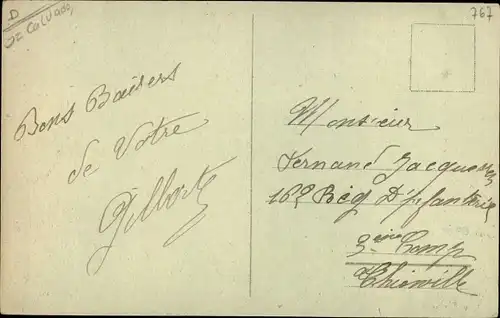 D
Calvados
767
Bons Baisers
de Votre
Gilberte
Monsieur
Fernand Jacques
162 Rég D'infanterie
3ème Comp
Thionville